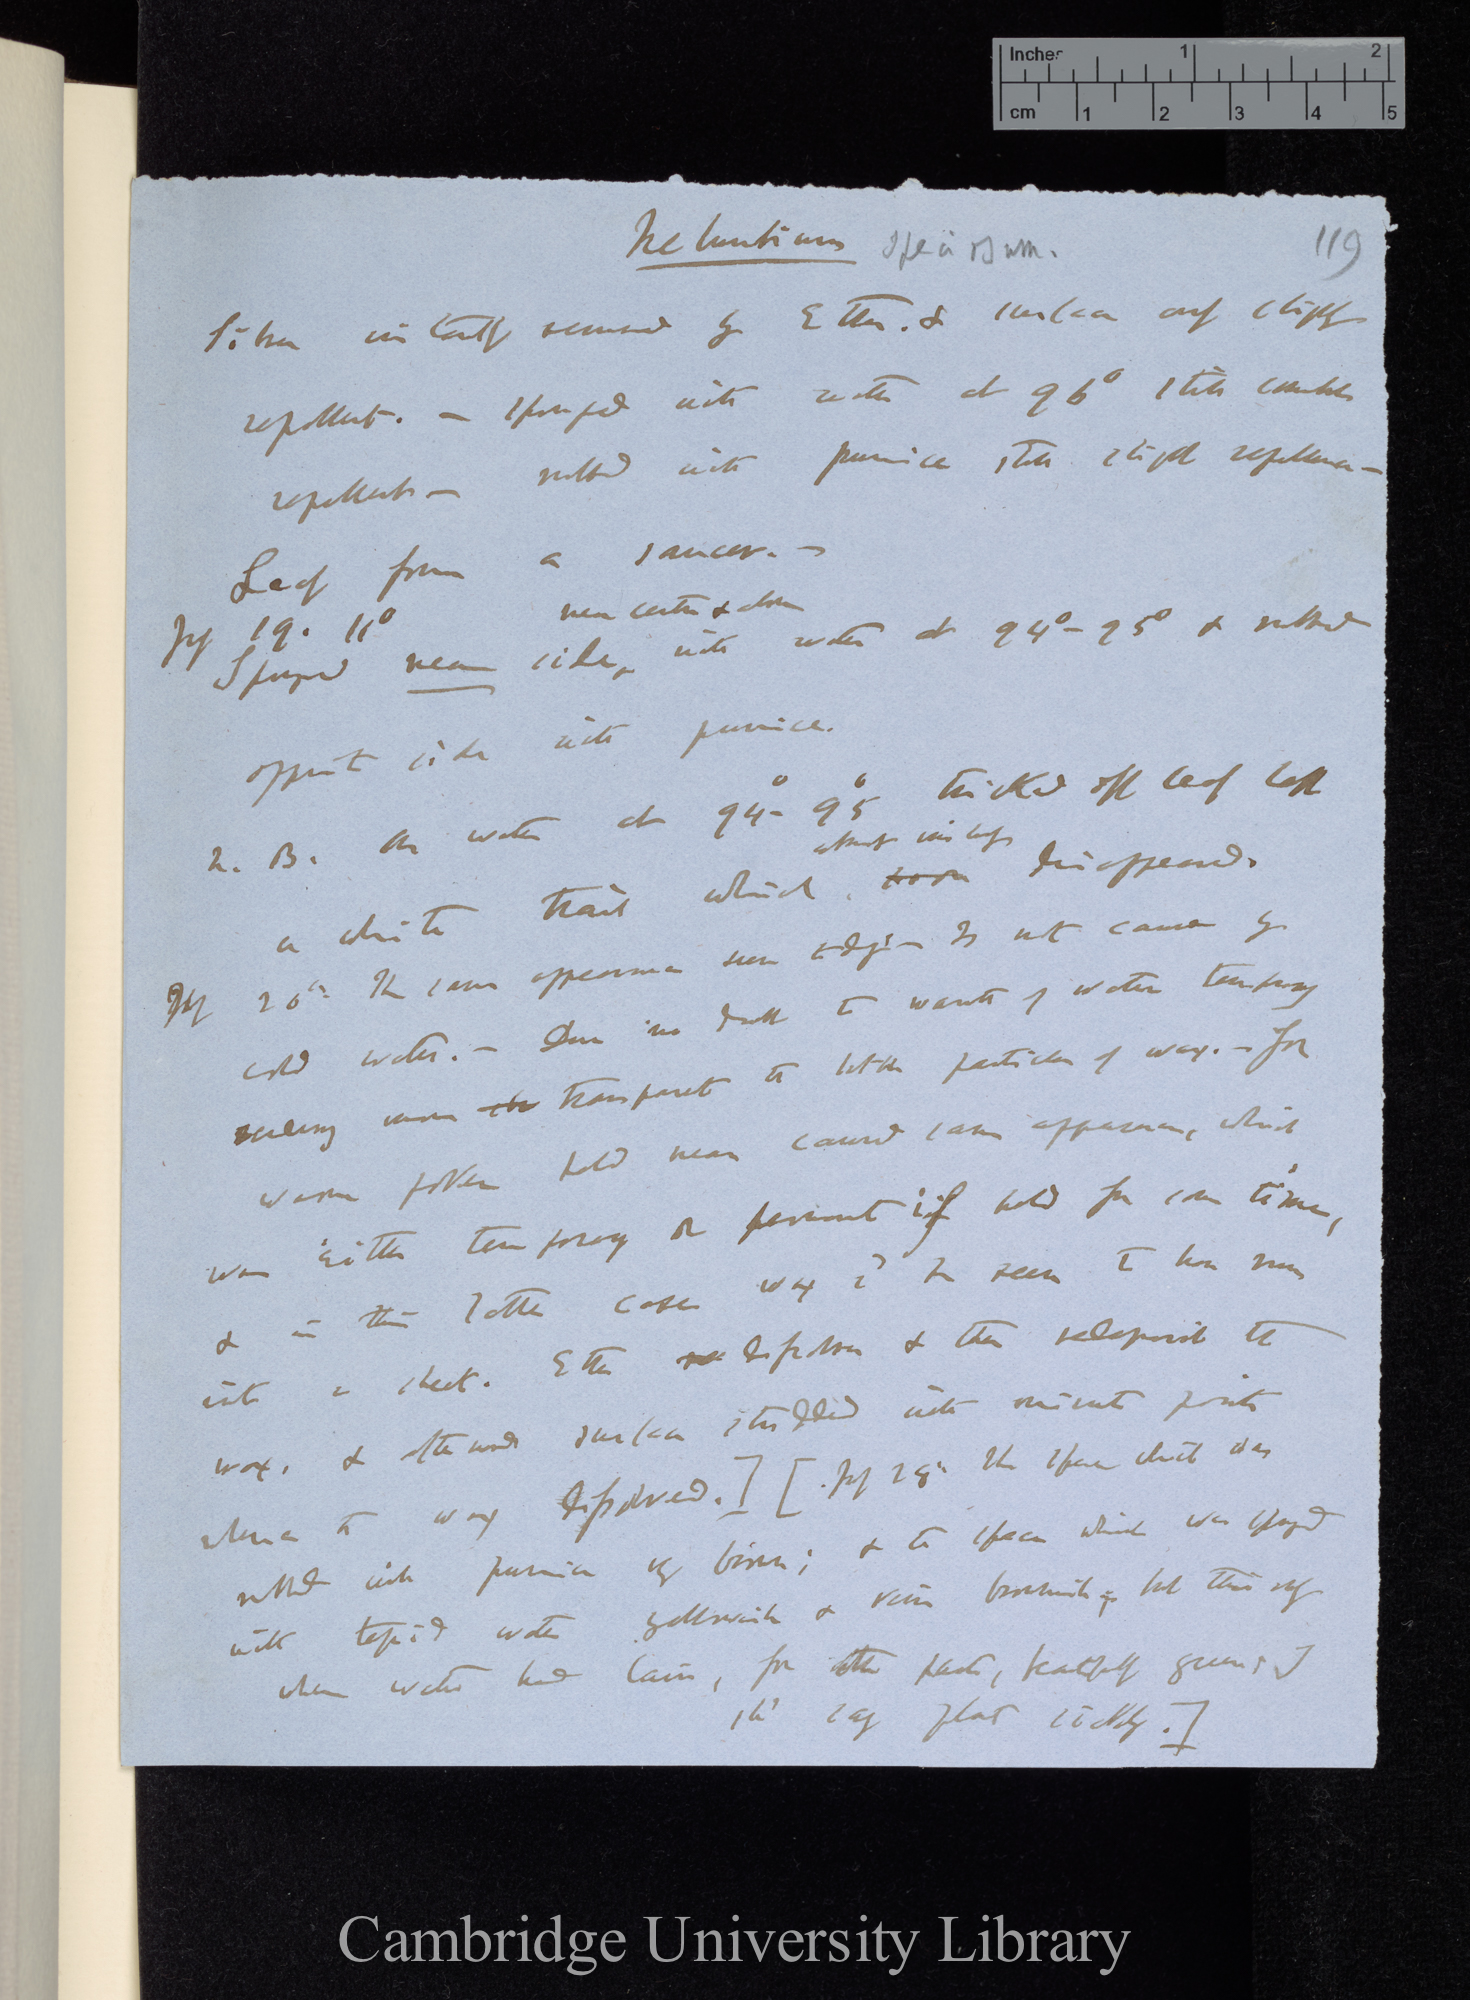 Inches 1 2
cm 1 2 3 4 5
119
Nelumbium speciosum.
instantly removed by Ether. & surface only slightly
repellent. — sponged with water at 96° still
repellent — rubbed with pumice still slight repellence —
Leaf from a saucer. —
July 19. 11°
near centre & down
Sponged near side, with water at 94° – 95° & rubbed
opposite side with pumice.
N. B. The water at 94° – 95° trickled off leaf left
almost instantly
a white trail which soon disappeared.
July 20th The same appearance seen is not caused by
cold water. — Due no doubt to warmth of water temporarily
rendering more the transparent the little particles of wax. — for
warm poker held near caused same appearance, which
was either temporary or permanent if held for some time,
& in this latter case wax cd be seen to have run
into a sheet. Ether dissolves & then redeposits the
wax, & afterwards surface studded with minute points
where the wax dissolved.] [July 28th The space which was
rubbed with pumice is brown; & the space which was sponged
with tepid water yellowish & rim brownish; but this only
where water had lain, for other parts, beautifully green;
shd say plant sickly.]
Cambridge University Library